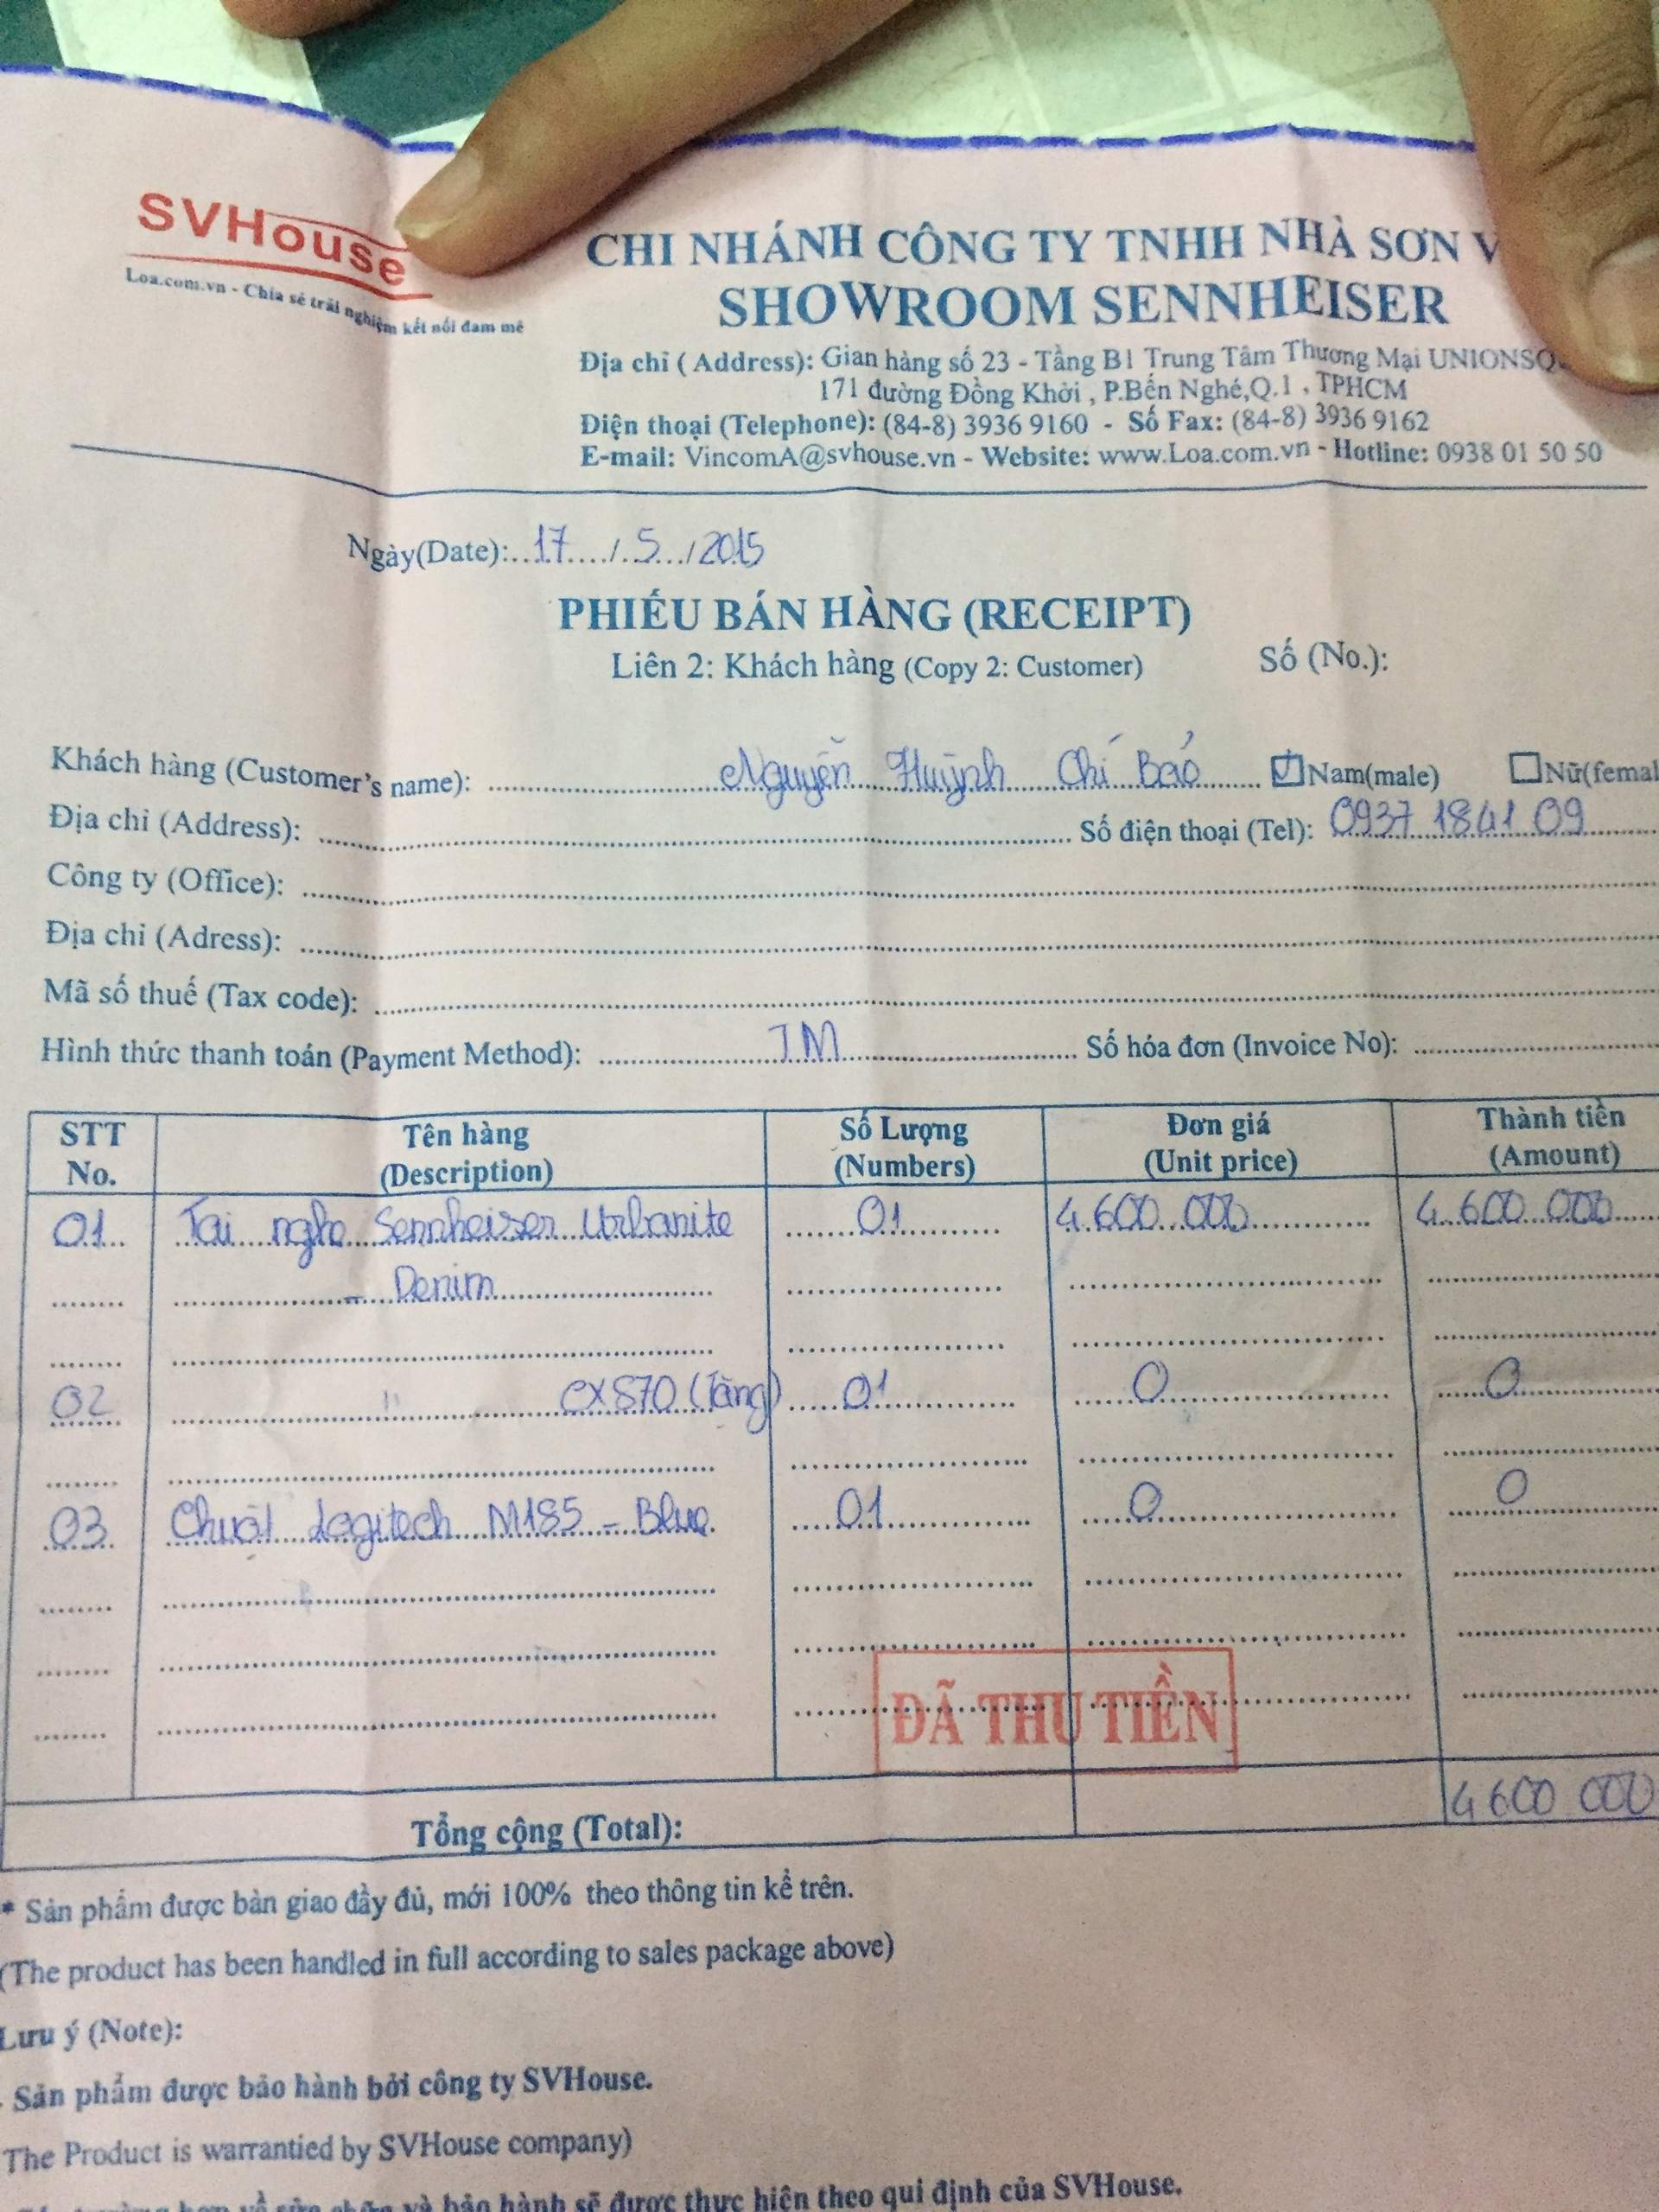 SVHouse
Loa.com.vn - Chia sẻ trải nghiệm kết nối đam mê
CHI NHÁNH CÔNG TY TNHH NHÀ SƠN V
SHOWROOM SENNHEISER
Địa chỉ ( Address): Gian hàng số 23 - Tầng B1 Trung Tâm Thương Mại UNIONSQ
171 đường Đồng Khởi , P.Bến Nghé,Q.1 , TPHCM
Điện thoại (Telephone): (84-8) 3936 9160 - Số Fax: (84-8) 3936 9162
E-mail: VincomA@svhouse.vn - Website: www.Loa.com.vn - Hotline: 0938 01 50 50
Ngày(Date): 17 / 5 / 2015
PHIẾU BÁN HÀNG (RECEIPT)
Liên 2: Khách hàng (Copy 2: Customer) Số (No.):
Khách hàng (Customer's name): Nguyễn Huỳnh Chí Bảo Nam(male) Nữ(femal
Địa chỉ (Address): Số điện thoại (Tel): 0937 1841 09
Công ty (Office):
Địa chỉ (Adress):
Mã số thuế (Tax code):
Hình thức thanh toán (Payment Method): TM Số hóa đơn (Invoice No):
STT Tên hàng Số Lượng Đơn giá Thành tiền
No. (Description) (Numbers) (Unit price) (Amount)
01 Tai nghe Sennheiser Urbanite 01 4.600 000 4.600 000
- Denim
02 " CX870 (Tặng) 01 0 0
03 Chuột Logitech M185 - Blue 01 0 0
ĐÃ THU TIỀN
Tổng cộng (Total): 4 600 000
* Sản phẩm được bàn giao đầy đủ, mới 100% theo thông tin kể trên.
(The product has been handled in full according to sales package above)
Lưu ý (Note):
. Sản phẩm được bảo hành bởi công ty SVHouse.
The Product is warrantied by SVHouse company)
về sửa chữa và bảo hành sẽ được thực hiện theo qui định của SVHouse.